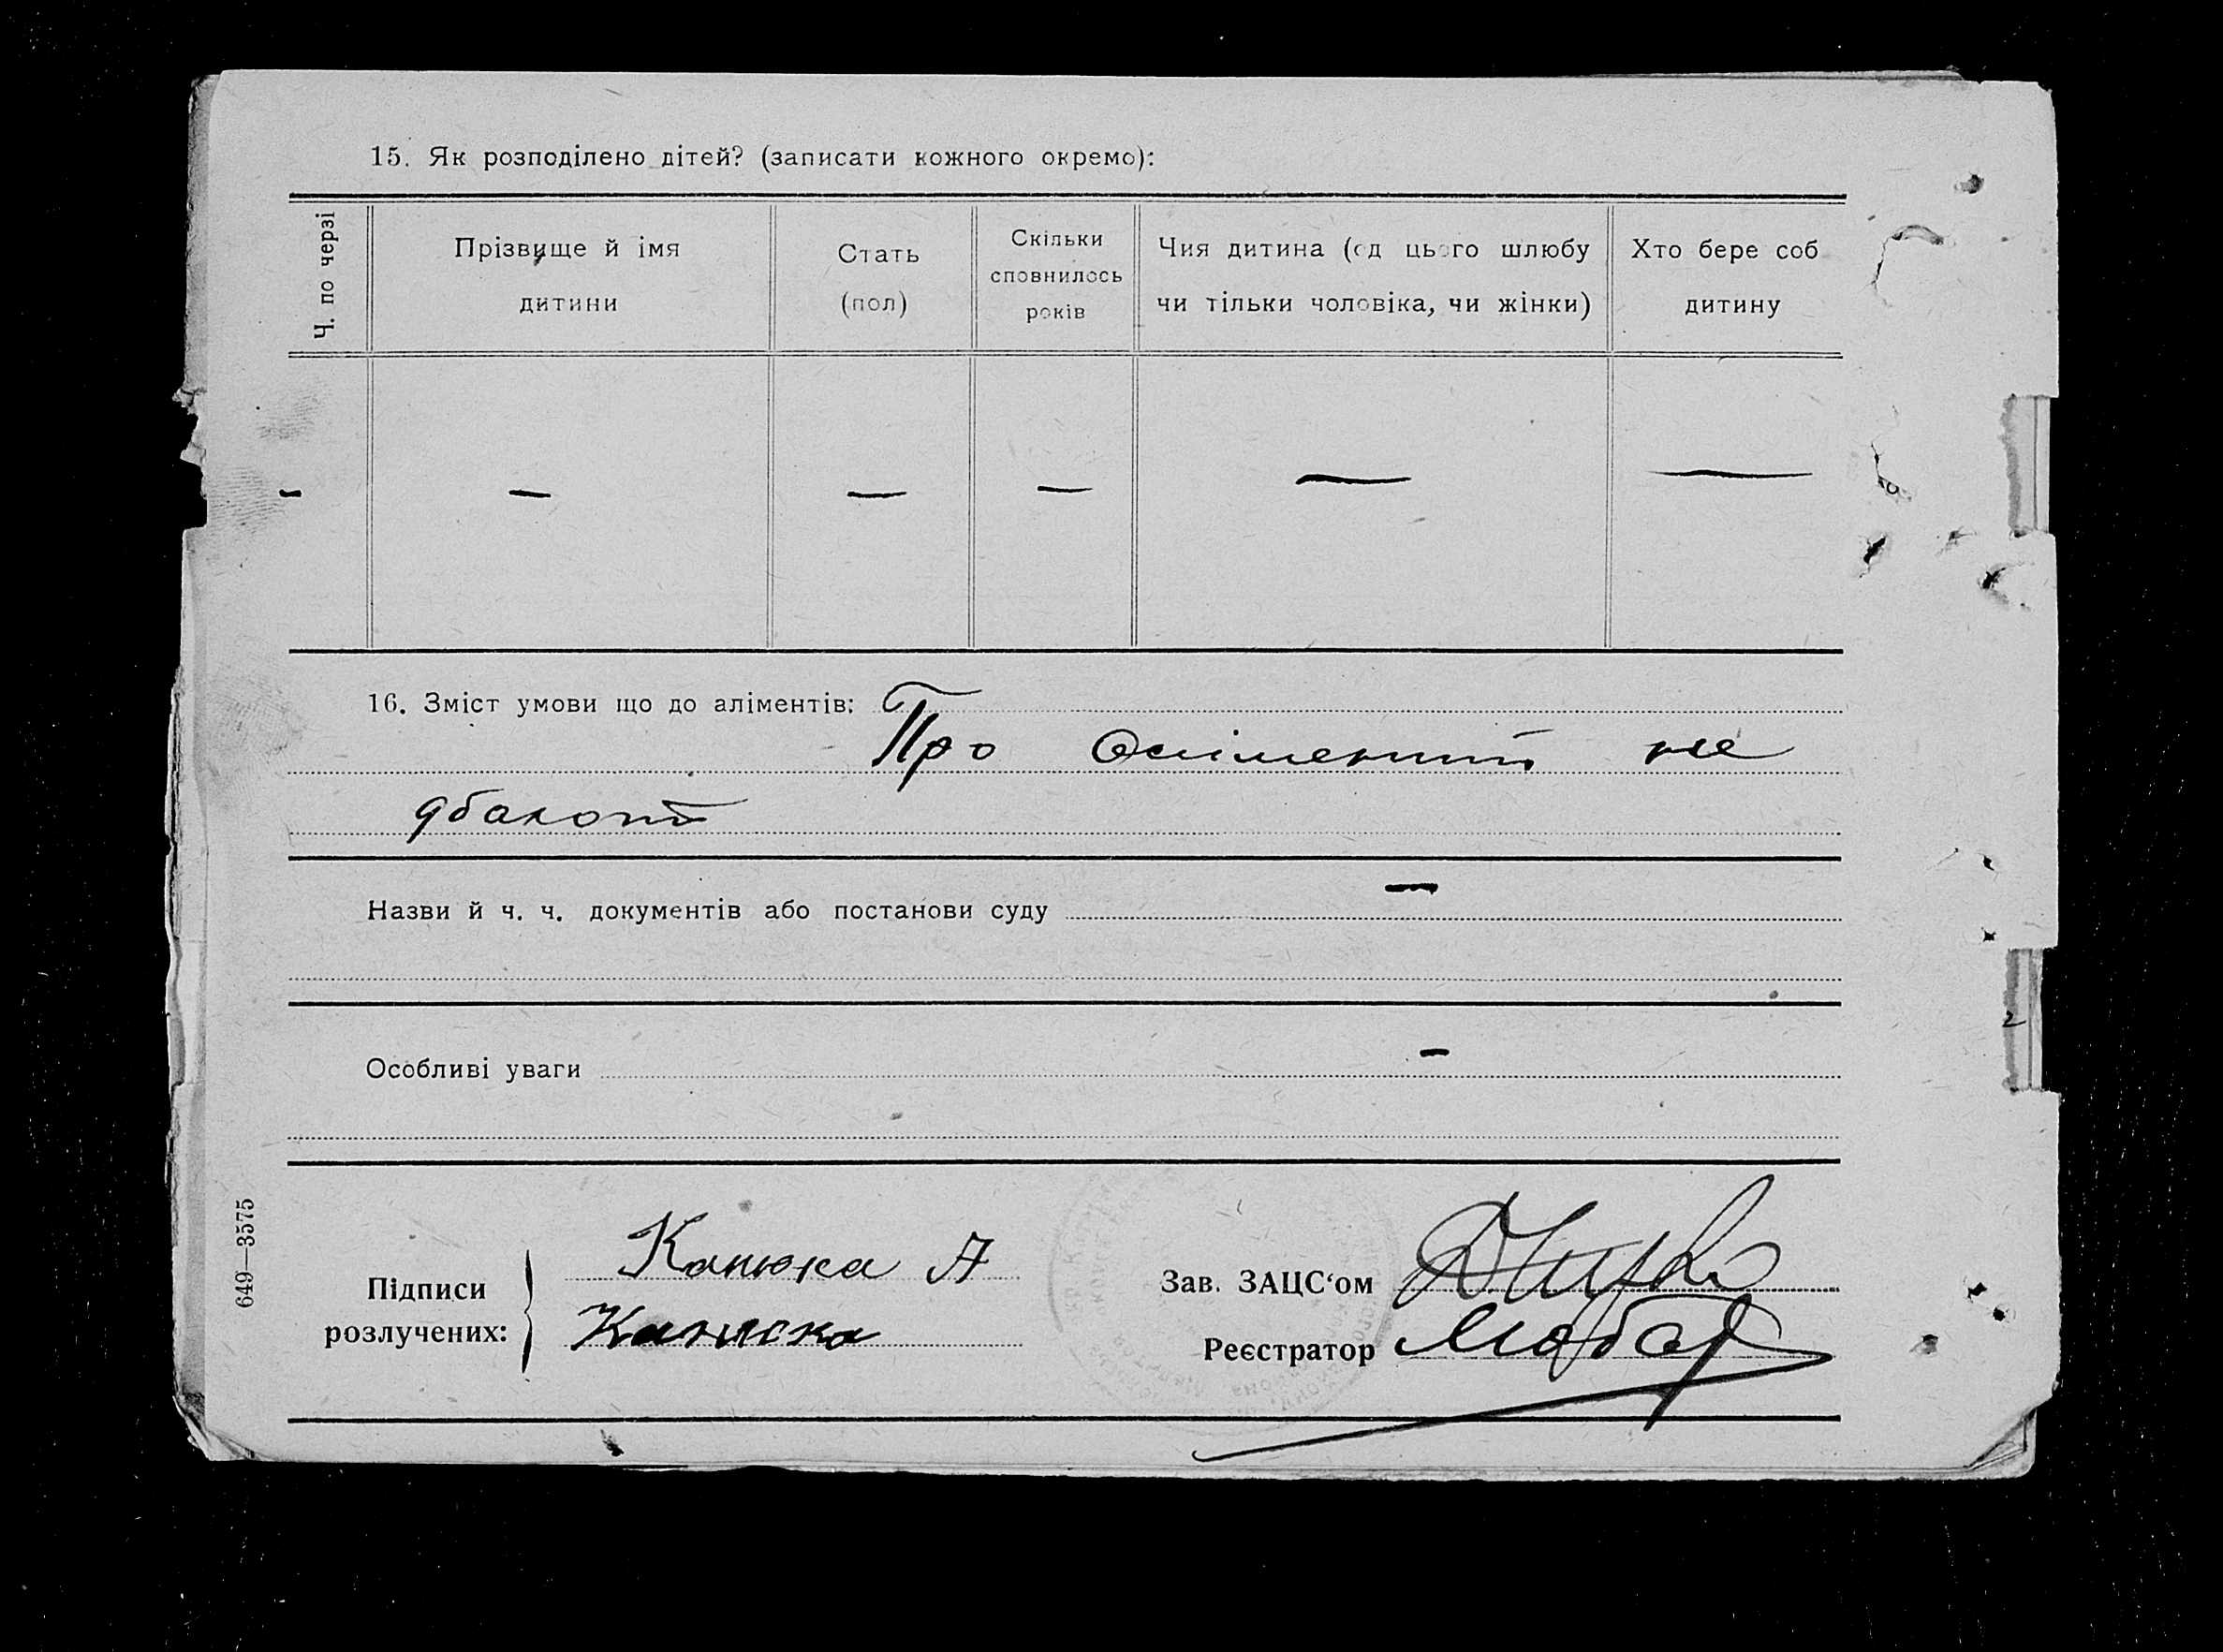 15. Як розподілено дітей? (записати кожного окремо):
Ч. по черзі
Прізвище й імя
дитини
Стать
(пол)
Скільки
сповнилось
років
Чия дитина (од цього шлюбу
чи тільки чоловіка, чи жінки)
Хто бере соб
дитину
— — — — — —
16. Зміст умови що до аліментів:
Про аліменти не
дбають
Назви й ч. ч. документів або постанови суду —
Особливі уваги —
649—3575
Підписи
розлучених:
Канюка А
Канюка
Зав. ЗАЦС‘ом
Реєстратор